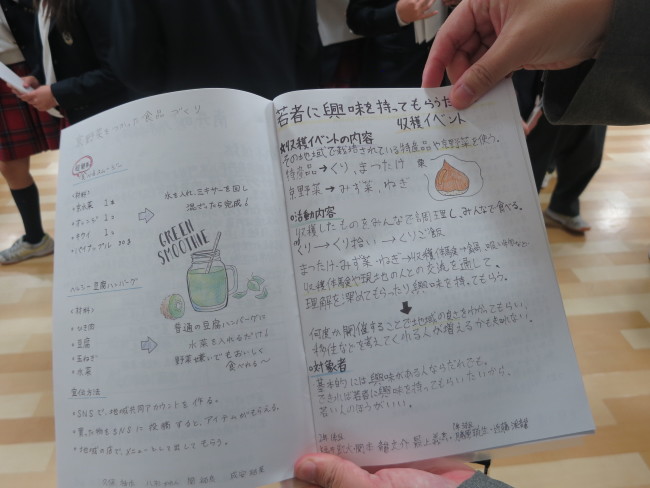 京野菜をつかった食品づくり
〈材料〉
・オレンジ 1コ
・キウイ 1コ
・パイナップル 30g
水を入れ、ミキサーを回し
混ざったら完成!
GREEN
SMOOTHIE
ヘルシー豆腐ハンバーグ
〈材料〉
・ひき肉
・豆腐
・玉ねぎ
・水菜
普通の豆腐ハンバーグに
水菜を入れるだけ!
野菜嫌いでもおいしく
食べれる〜
宣伝方法
・SNSで、地域共同アカウントを作る。
・買った物をSNSに投稿すると、アイテムがもらえる。
・地域の店で、メニューとして出してもらう。
若者に興味を持ってもらうため
収穫イベント
収穫イベントの内容
その地域で栽培されている特産品や京野菜を使う。
特産品→くり、まつたけ
栗
京野菜→みず菜、ねぎ
活動内容
収穫したものをみんなで調理し、みんなで食べる。
くり→くり拾い→くりご飯
まつたけ・みず菜・ねぎ→収穫体験→鍋、
収穫体験や現地の人との交流を通して、
理解を深めてもらったり興味を持ってもらう。
何度か開催することで地域の良さをわかってもらい、
移住などを考えてくれる人が増えるかも知れない。
対象者
基本的には興味がある人ならだれでも。
できれば若者に興味を持ってもらいたいから、
若い人のほうがいい。